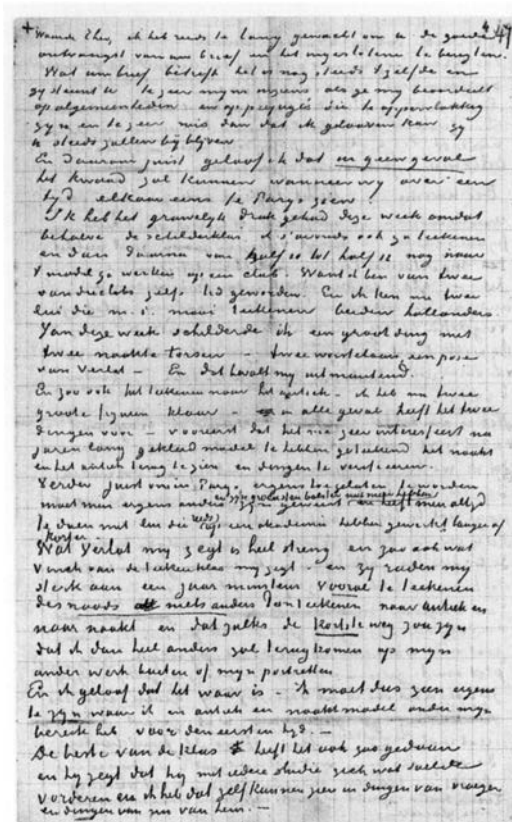 Waarde Theo, ik heb reeds te lang gewacht om u de goede
ontvangst van uw brief en het ingeslotene te berigten.
Wat uw brief betreft het is nog steeds 't zelfde en
gij steunt te zeer mijns inziens als ge mij beoordeelt
op algemeenheden en op prejugés die te oppervlakkig
zijn en te zeer mis dan dat ik gelooven kan gij
u steeds zullen bij blijven
En daarom juist geloof ik dat in geen geval
het kwaad zal kunnen wanneer wij over een
tijd elkaar eens te Parys zien
Ik heb het gruwelijk druk gehad deze week omdat
behalve de schilderklas ik s'avonds ook ga teekenen
en dan daarna van half 10 tot half 12 nog naar
't model ga werken op een club. Want ik ben van twee
van die clubs zelfs lid geworden. En ik ken nu twee
lui die m.i. mooi teekenen beiden hollanders
Van deze week schilderde ik een groot ding met
twee naakte torsen – twee worstelaars, een pose
van Verlat – En dat bevalt mij uitmuntend.
En zoo ook het teekenen naar het antiek – ik heb nu twee
groote figuren klaar – in alle geval heeft het twee
dingen voor – vooreerst dat het me zeer interesseert na
jaren lang gekleed model te hebben geteekend het naakt
en het antiek terug te zien en dingen te verifieeren.
Verder juist om in Parys ergens toegelaten te worden
moet men ergens anders zijn geweest en heeft men altijd
en zijn grootsten bolster niet meer hebben
te doen met lui die reeds op een akademie hebben gewerkt langer of
korter.
Wat Verlat mij zegt is heel streng en zoo ook wat
Vinck van de teekenklas mij zegt – en zij raden mij
sterk aan een jaar minstens vooral te teekenen
des noods niets anders dan teekenen naar antiek en
naar naakt en dat zulks de kortste weg zou zijn
dat ik dan heel anders zal terug komen op mijn
ander werk buiten of mijn portretten
En ik geloof dat het waar is – ik moet dus zien ergens
te zijn waar ik en antiek en naakt model onder mijn
bereik heb voor den eersten tijd. –
De beste van de klas heeft het ook zoo gedaan
en hij zegt dat hij met iedere studie zich wat voelde
vorderen en ik heb dat zelf kunnen zien in dingen van vroeger
en dingen van nu van hem. –